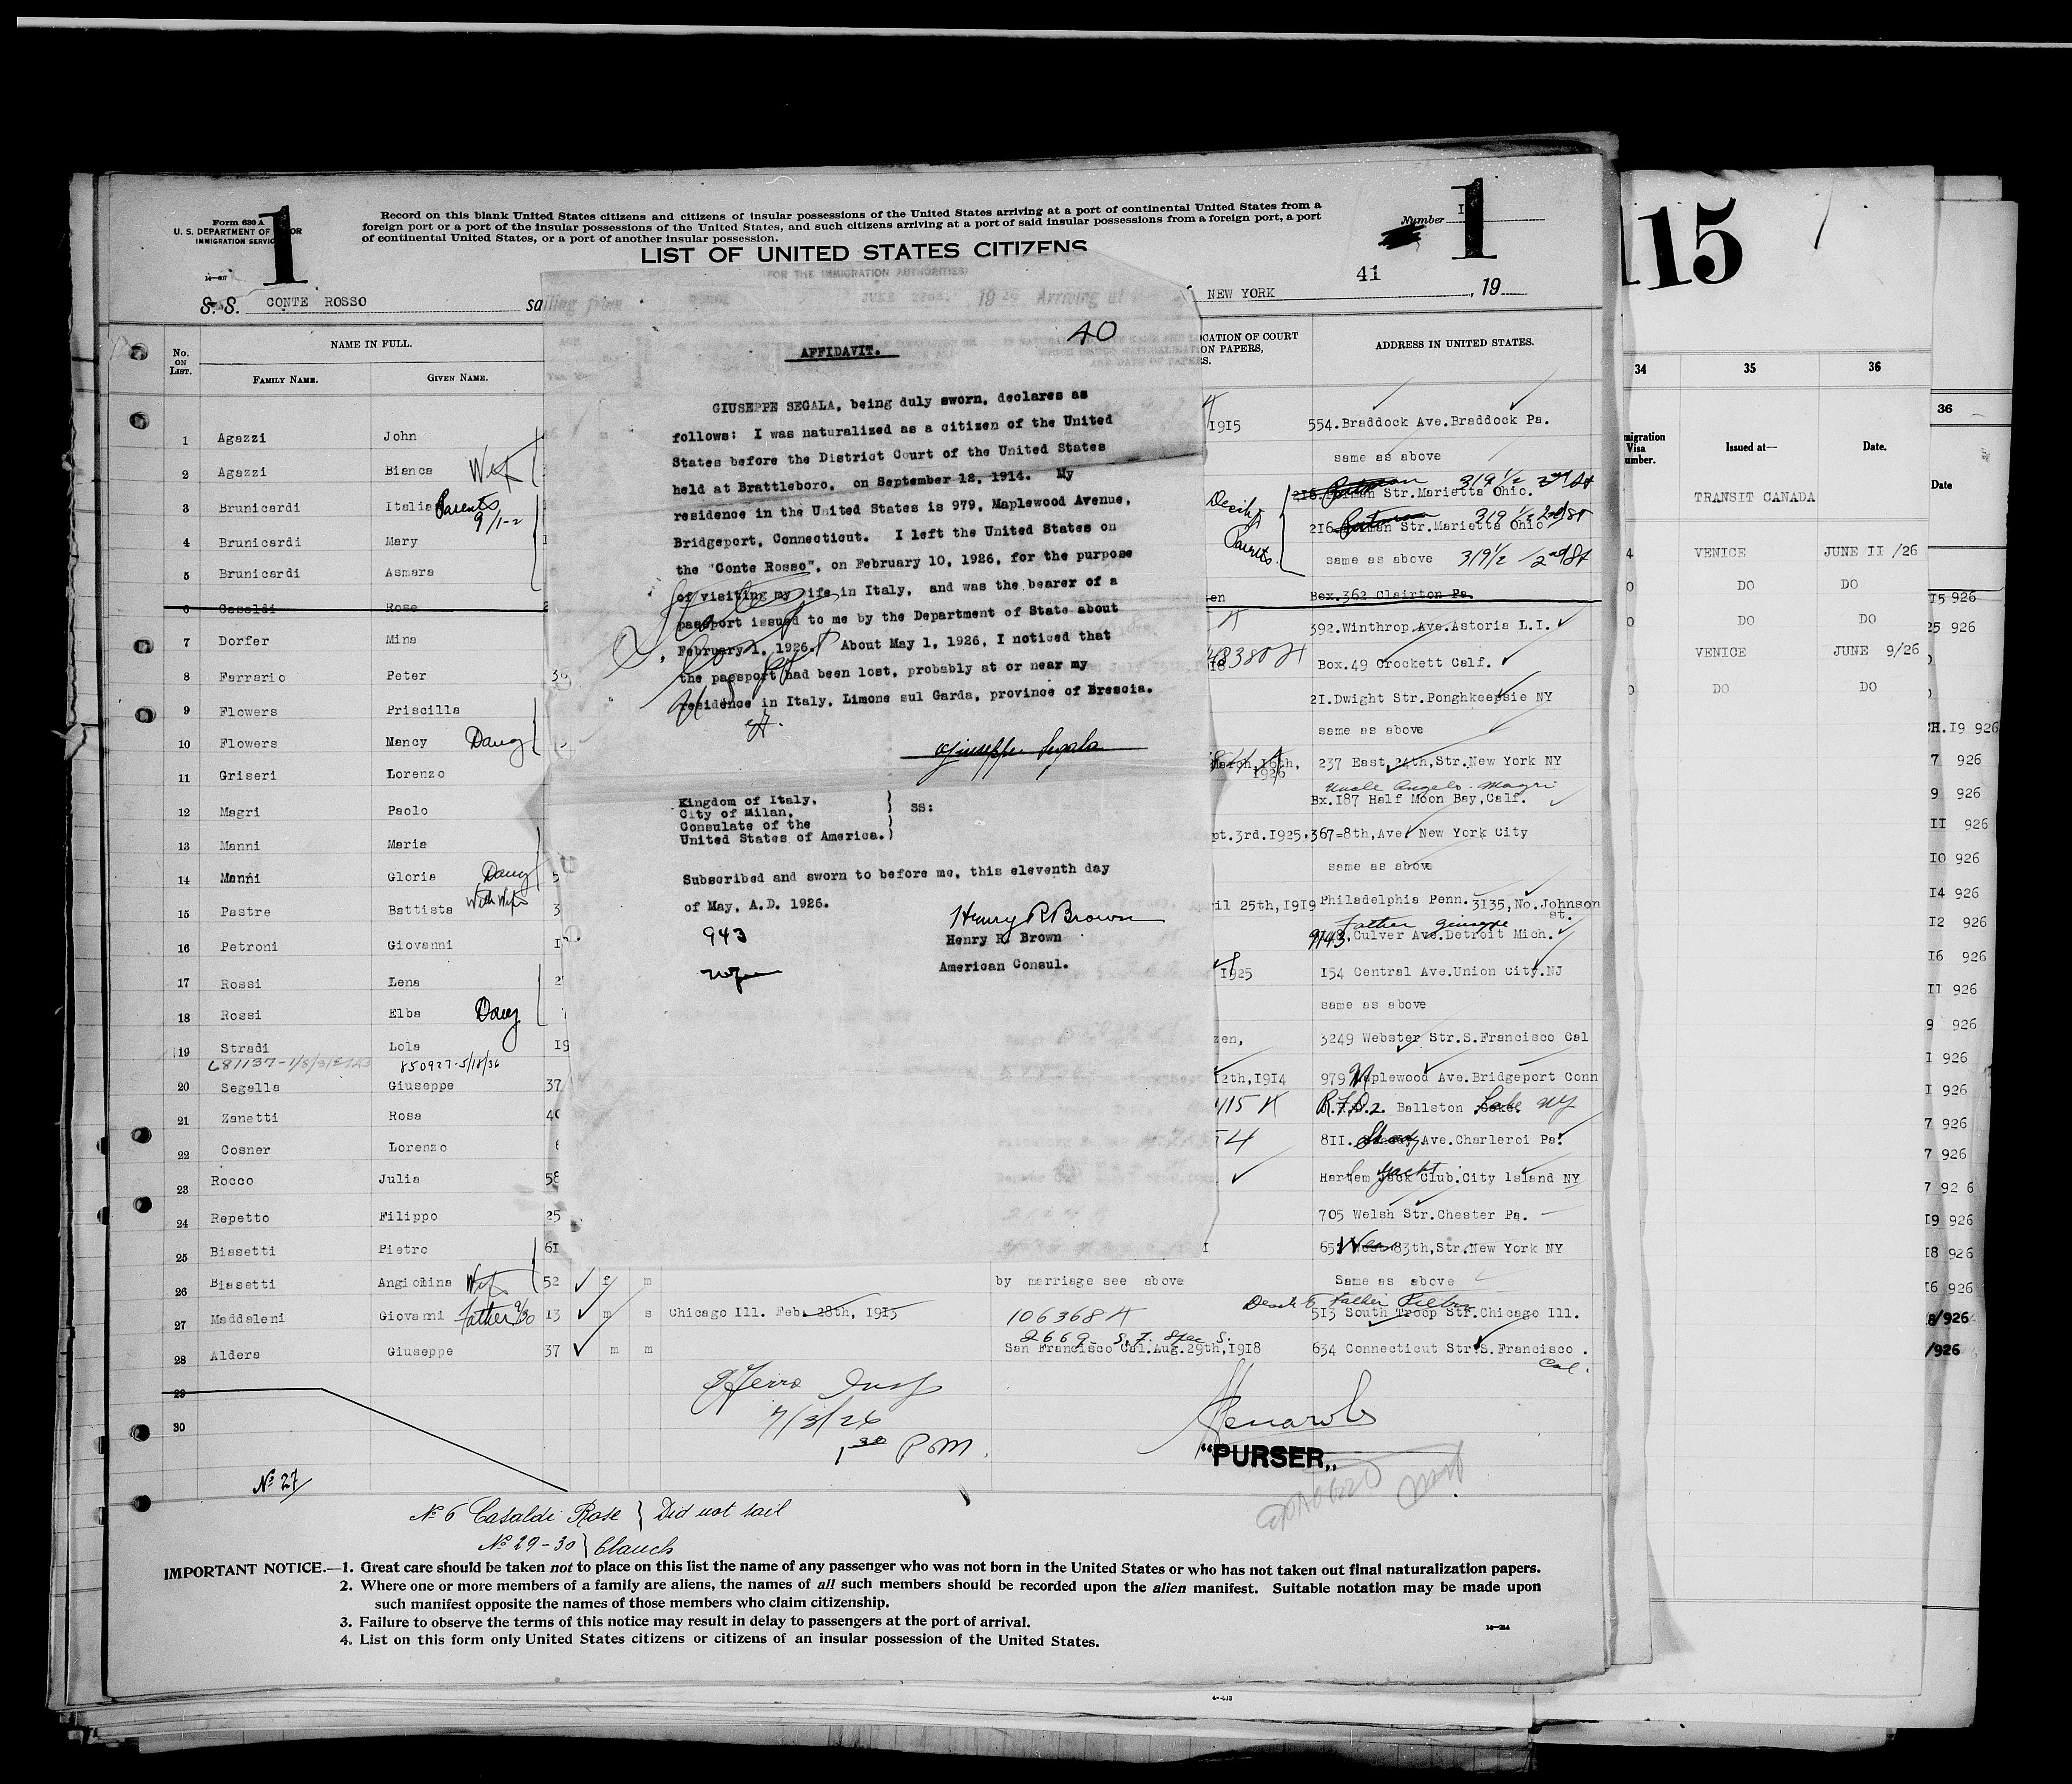 Form 630 A
U. S. DEPARTMENT OF LABOR
IMMIGRATION SERVICE
1
Record on this blank United States citizens and citizens of insular possessions of the United States arriving at a port of continental United States from a
foreign port or a port of the insular possessions of the United States, and such citizens arriving at a port of said insular possessions from a foreign port, a port
of continental United States, or a port of another insular possession.
Number
1
LIST OF UNITED STATES CITIZENS
(FOR THE IMMIGRATION AUTHORITIES)
S. S. CONTE ROSSO sailing from JUNE 1926 Arriving at NEW YORK 41 , 19
No. ON LIST.
NAME IN FULL.
FAMILY NAME. GIVEN NAME.
LOCATION OF COURT
ON PAPERS,
ADDRESS IN UNITED STATES.
1 Agazzi John 1915 554.Braddock Ave.Braddock Pa.
2 Agazzi Bianca Wife same as above
3 Brunicardi Italia Parents 9/1-2 Str.Marietta Ohio. 319 1/2 2nd St
4 Brunicardi Mary 216 Str.Marietta Ohio. 319 1/2 2nd St
5 Brunicardi Asmara same as above 319 1/2 2nd St
6 Casaldi Rose Box.362 Clairton Pa.
7 Dorfer Mina 392.Winthrop.Ave.Astoria L.I.
8 Ferrario Peter 36 Box.49 Crockett Calf.
9 Flowers Priscilla 2I.Dwight Str.Ponghkeepsie NY
10 Flowers Nancy Daug same as above
11 Griseri Lorenzo March,16th, 1926 237 East 24th,Str.New York NY
Uncle Angelo Magri
12 Magri Paolo Bx.I87 Half Moon Bay,Calf.
13 Manni Maria pt.3rd.I925, 367=8th,Ave New York City
14 Manni Gloria Daug 5 same as above
15 Pastre Battista With Wife 3 il 25th,I9I9 Philadelphia Penn. 3I35,No.Johnson st.
Father Giuseppe
16 Petroni Giovanni 9143.Culver Ave.Detroit Mich.
17 Rossi Lena 2 I925 I54 Central Ave.Union City.NJ
18 Rossi Elba Daug same as above
19 Stradi Lola I9 zen, 3249 Webster Str.S.Francisco Cal
850927-5/18/36
20 Segalla Giuseppe 37 I2th,I9I4 979 Maplewood Ave.Bridgeport Conn
21 Zanetti Rosa R.F.D.2. Ballston Lake NY
22 Cosner Lorenzo 8II. Shady Ave.Charleroi Pa.
23 Rocco Julia 58 Harlem Yacht Club.City Island NY
24 Repetto Filippo 25 705 Welsh Str.Chester Pa.
25 Biasetti Pietro 6I West 83th,Str.New York NY
26 Biasetti Angiolina Wife 52 f m by marriage see above Same as above
27 Maddaleni Giovanni Father 9/30 I3 m s Chicago Ill. Feb. 28th, I9I5 106368 5I3 South Troop Str.Chicago Ill.
2669 S.F. Spec S.
28 Aldera Giuseppe 37 m m San Francisco Cal.Aug.29th,I9I8 634 Connecticut Str.S.Francisco .
Cal.
29
30
7/3/26
1 30 PM.
"PURSER„
No 27
No 6 Casaldi Rose } Did not sail
No 29-30 }
IMPORTANT NOTICE.—1. Great care should be taken not to place on this list the name of any passenger who was not born in the United States or who has not taken out final naturalization papers.
2. Where one or more members of a family are aliens, the names of all such members should be recorded upon the alien manifest. Suitable notation may be made upon
such manifest opposite the names of those members who claim citizenship.
3. Failure to observe the terms of this notice may result in delay to passengers at the port of arrival.
4. List on this form only United States citizens or citizens of an insular possession of the United States.
40
AFFIDAVIT.
GIUSEPPE SEGALA, being duly sworn, declares as
follows: I was naturalized as a citizen of the United
States before the District Court of the United States
held at Brattleboro, on September 12, 1914. My
residence in the United States is 979, Maplewood Avenue,
Bridgeport, Connecticut. I left the United States on
the "Conte Rosso", on February 10, 1926, for the purpose
of visiting my wife in Italy, and was the bearer of a
passport issued to me by the Department of State about
February 1, 1926. About May 1, 1926, I noticed that
the passport had been lost, probably at or near my
residence in Italy, Limone sul Garda, province of Brescia.
Giuseppe Segala
Kingdom of Italy,
City of Milan,
Consulate of the
United States of America.
SS:
Subscribed and sworn to before me, this eleventh day
of May, A.D. 1926.
943
Henry R Brown
Henry R. Brown
American Consul.
115
34 35 36
migration
Visa
umber.
Issued at—
Date.
TRANSIT CANADA
4 VENICE JUNE II /26
0 DO DO
0 DO DO
VENICE JUNE 9/26
0 DO DO
36
Date
I5 926
25 926
CH.I9 926
7 926
9 926
II 926
I0 926
I4 926
I2 926
I6 926
II 926
9 926
I 926
I 926
7 926
7 926
7 92 6
I9 926
I8 926
I6 926
8/926
/926